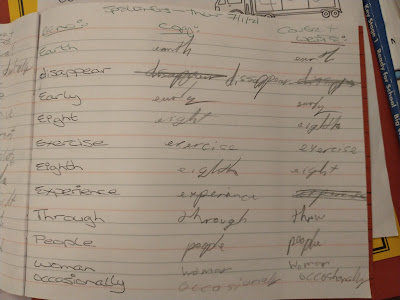 Spellings - 7/1/21
Copy: Cover +
Earth earth earth
disappear disappear disappear disappear
Early early early
Eight eight eighth
Exercise exercise exercise
Eighth eighth eight
Experience experience
Through through threw
People people people
Woman woman Woman
occasionally occasionally occasionally
Stage 1 Ready for School Big